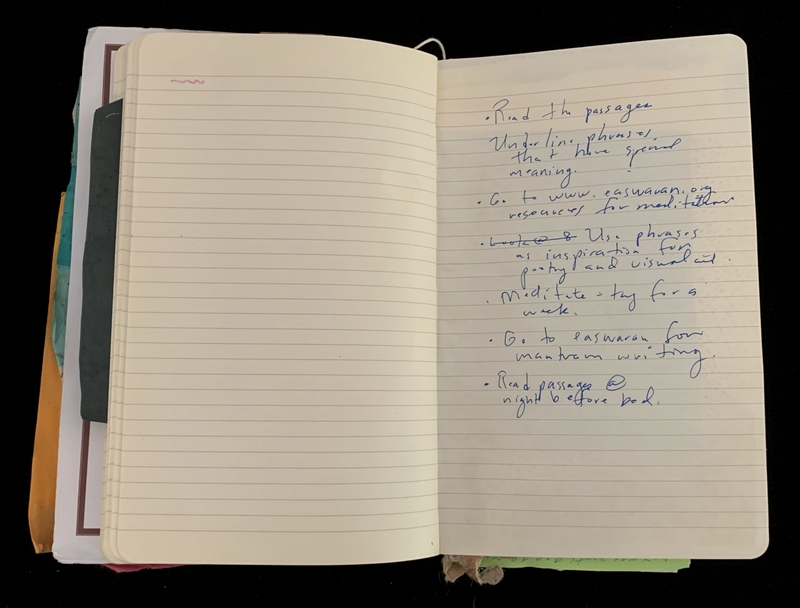 • Read the passages
Underline phrases
that have special
meaning.
• Go to www.easwaran.org
resources for meditation
• Use phrases
as inspiration for
poetry and visual art.
• Meditate - try for a
week.
• Go to easwaran for
mantram writing.
• Read passages @
night before bed.